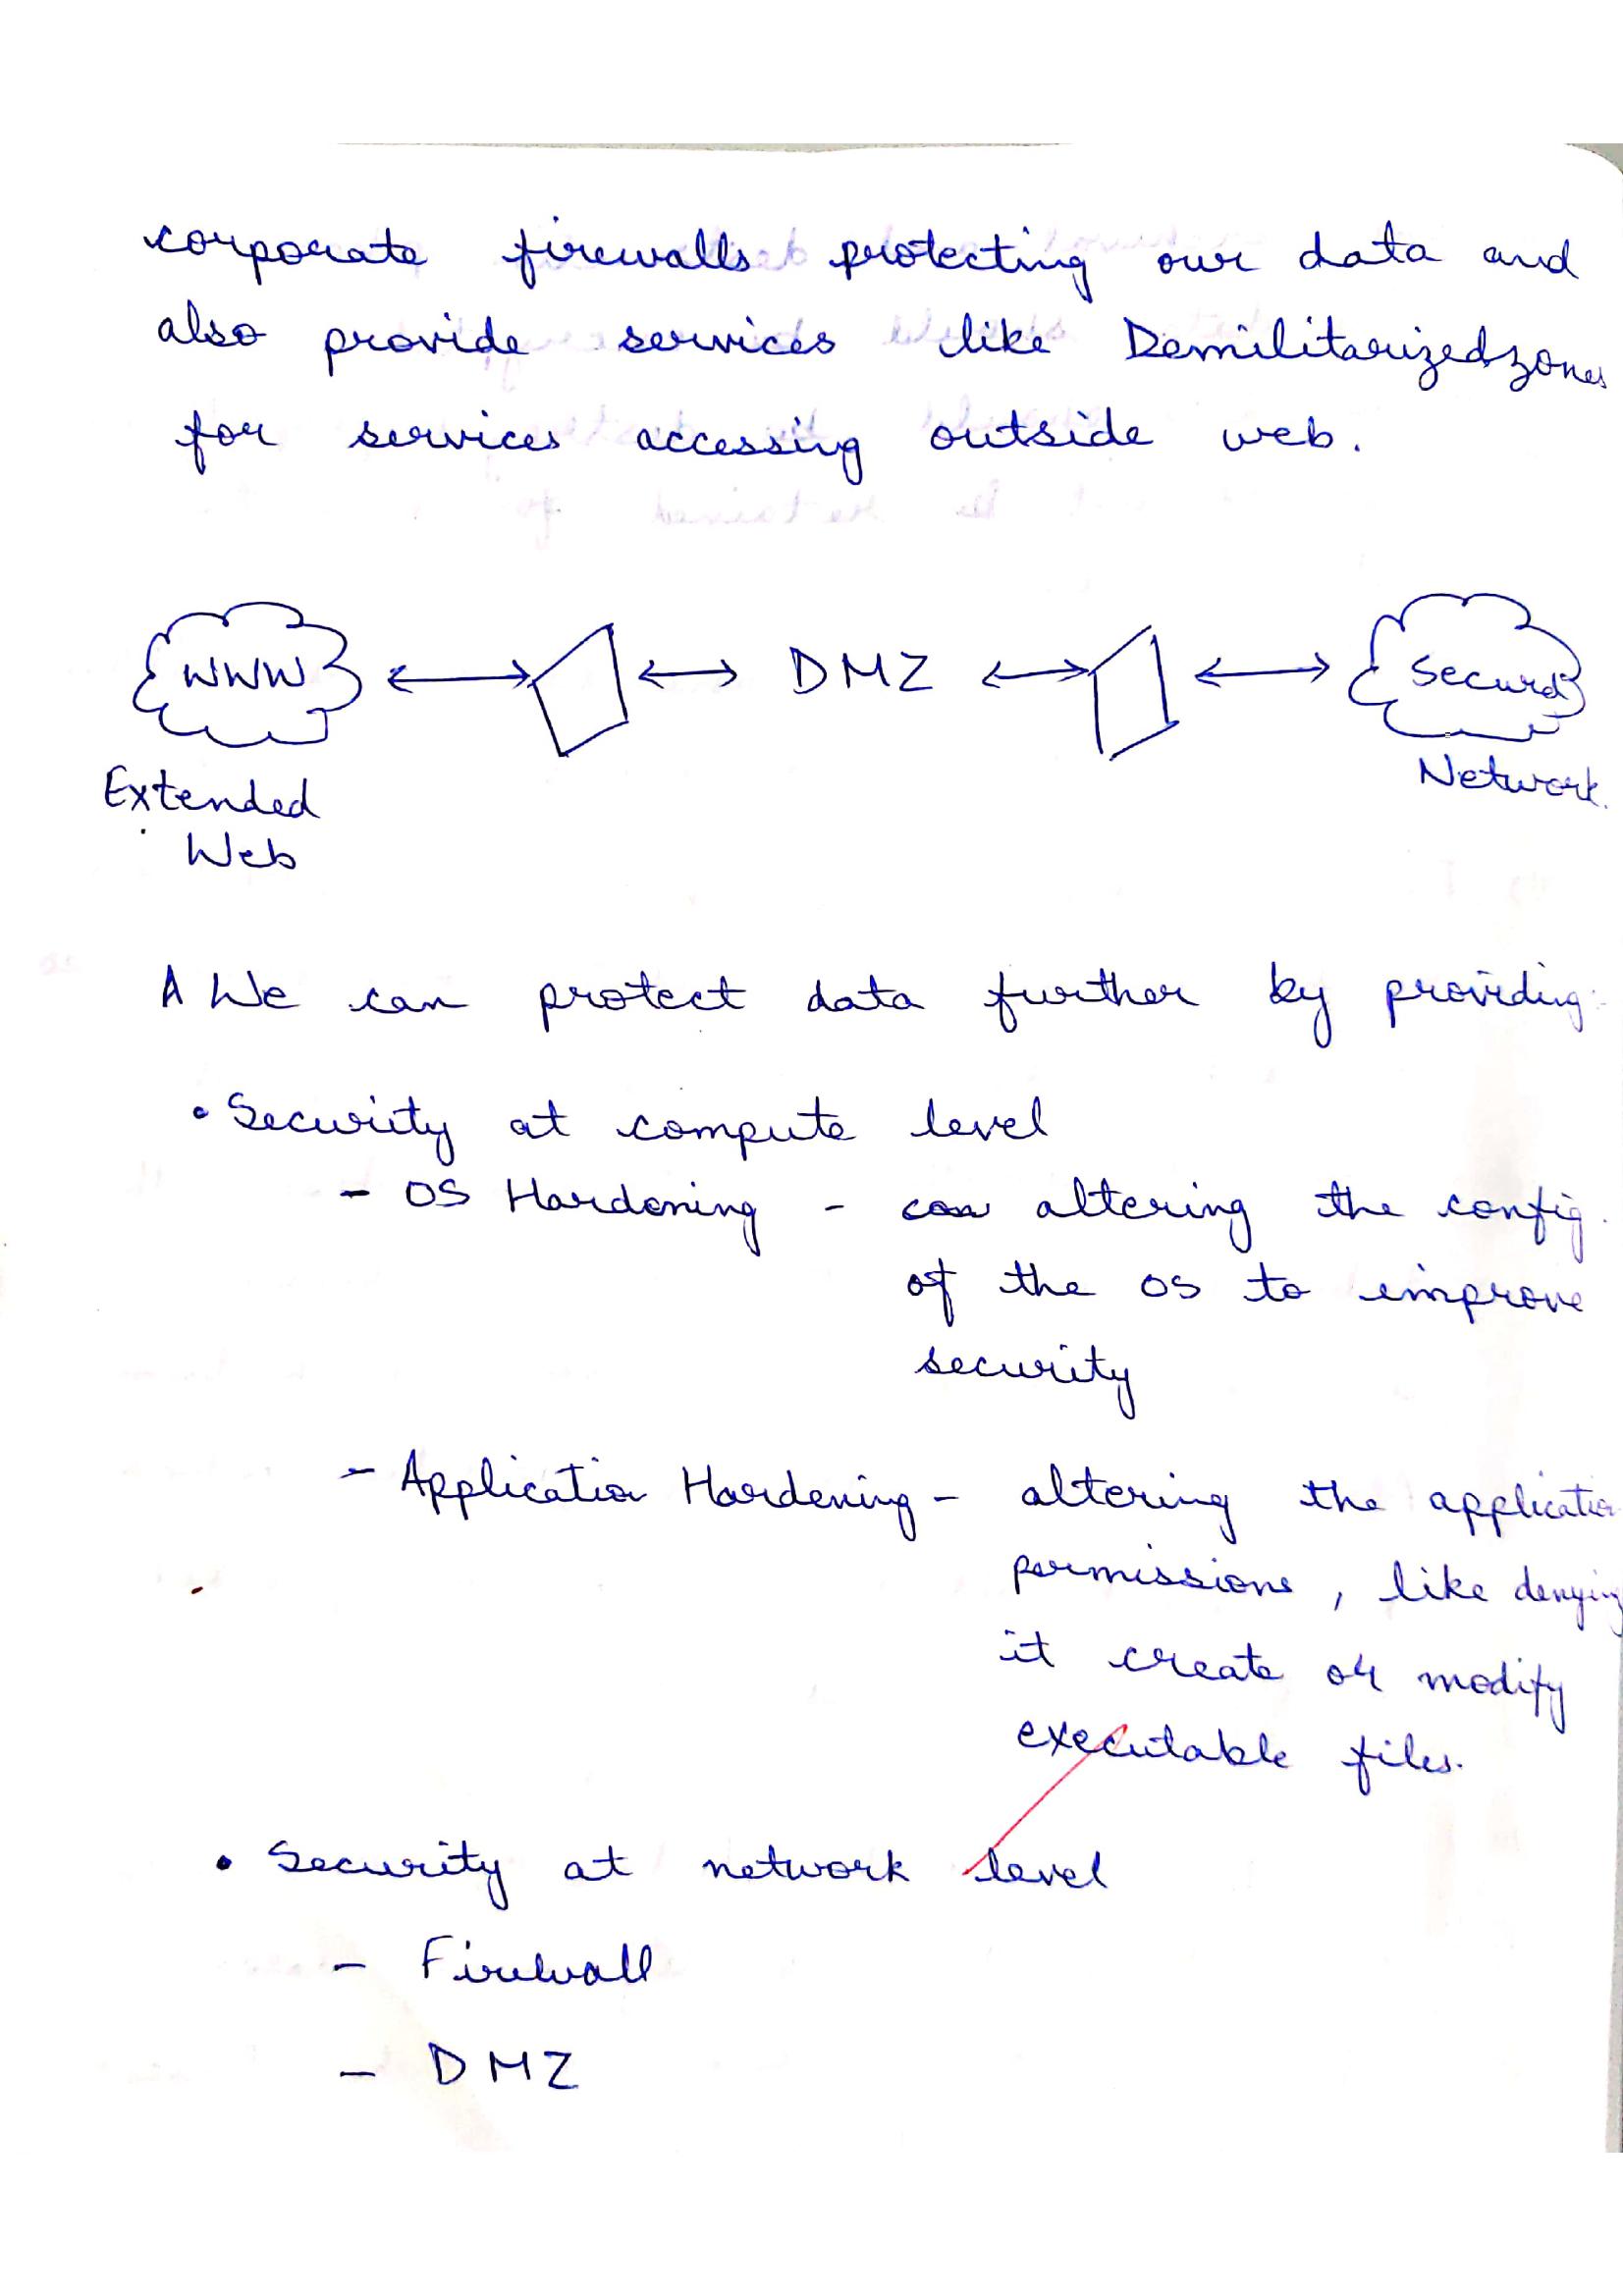 corporate firewalls protecting our data and
also provide services like Demilitarizedzones
for services accessing outside web.
WWW DMZ Secured
Extended Network.
Web
A We can protect data further by providing:
• Security at compute level
- OS Hardening - altering the config.
of the OS to improve
security
- Application Hardening - altering the application
permissions, like denying
it create or modify
executable files.
• Security at network level
- Firewall
- DMZ